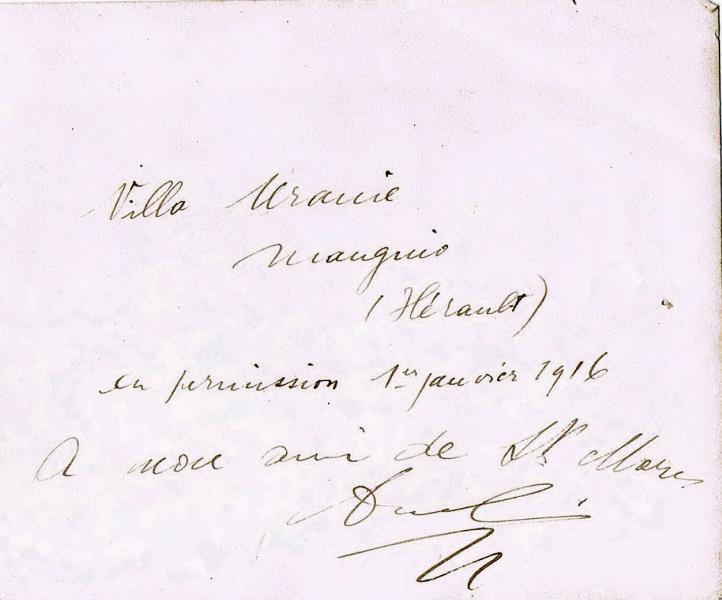 Villa Uranie
Mauguio
(Hérault)
en permission 1er janvier 1916
A mon ami de St